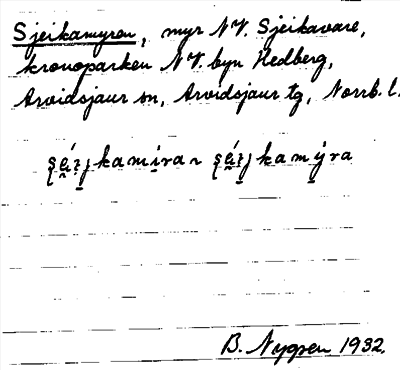 Sjeikamyren, myr NV. Sjeikavare,
kronoparken NV. byn Hedberg,
Arvidsjaur sn, Arvidsjaur tg, Norrb. l.
kamirar kamyra
B. Nygren 1932.